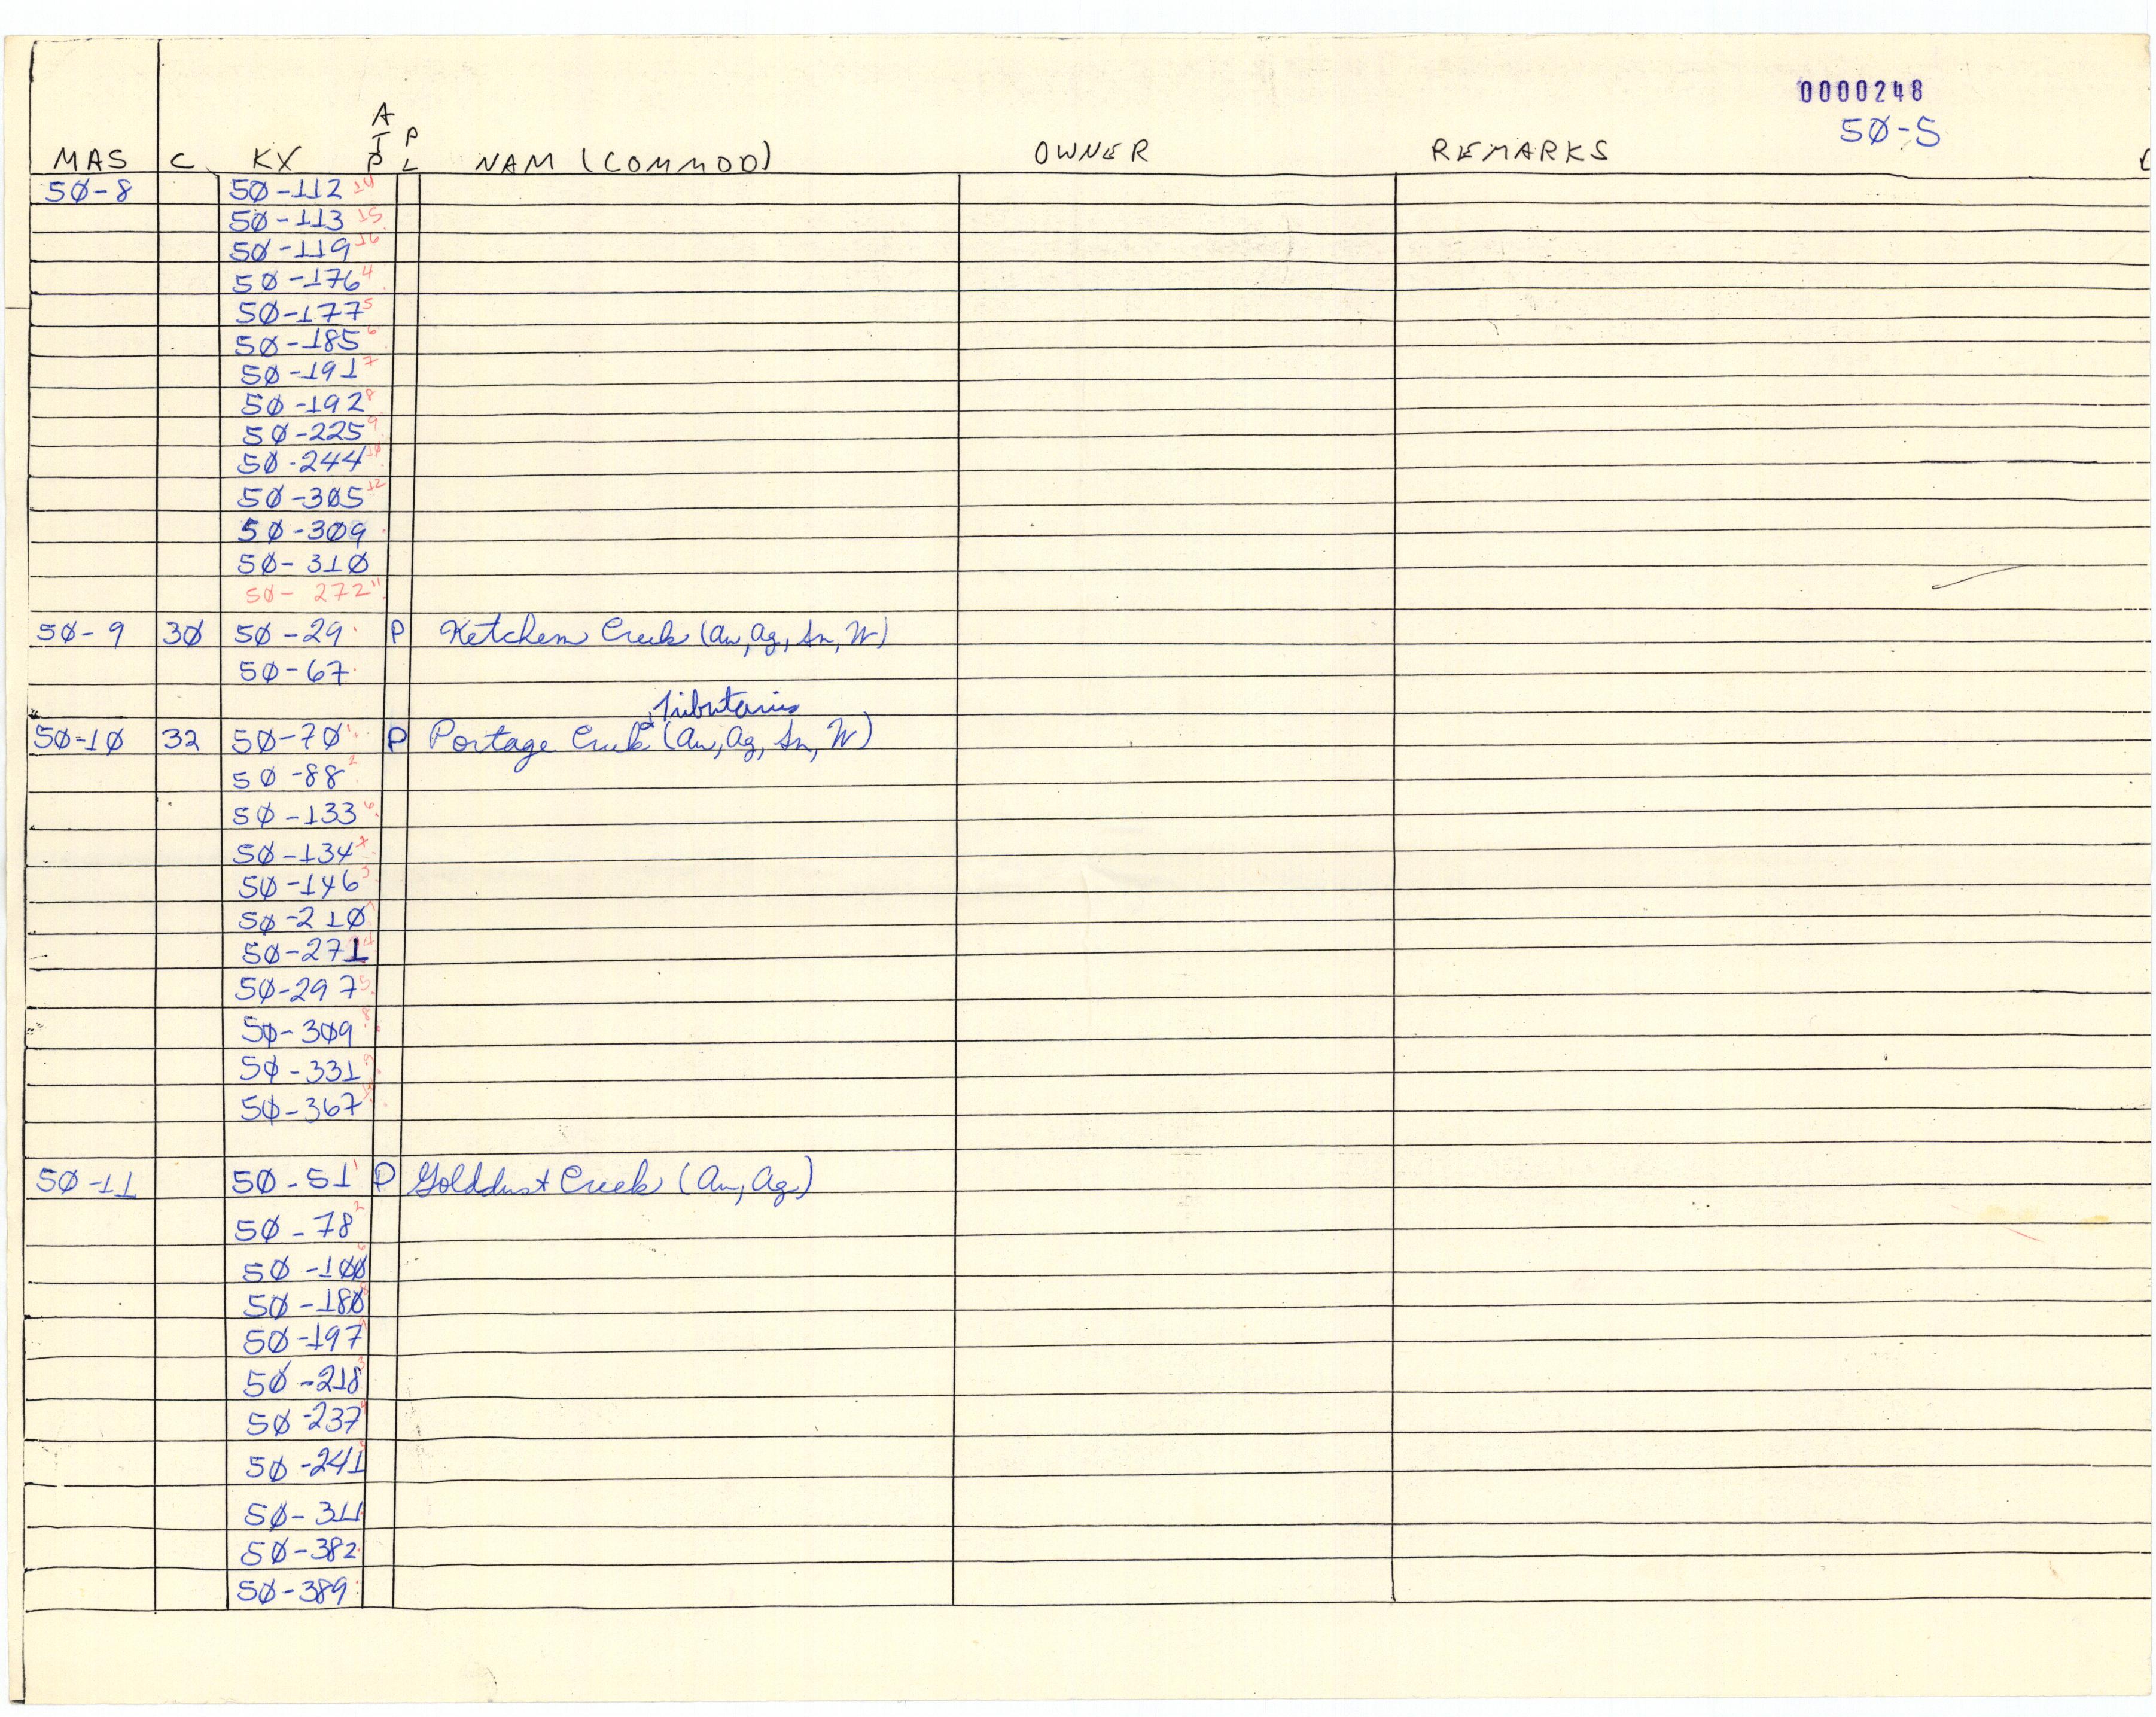 0000248
50-5
A
T
P
P
L
MAS C KX NAM (COMMOD) OWNER REMARKS
5Ø-8 5Ø-112 14
5Ø-113 15
5Ø-119 16
5Ø-176 4
5Ø-177 5
5Ø-185 6
5Ø-191 7
5Ø-192 8
5Ø-225 9
5Ø-244 1Ø
5Ø-3Ø5 12
5Ø-3Ø9
5Ø-31Ø
5Ø-272 11
5Ø-9 3Ø 5Ø-29 P Ketchem Creek (Au, Ag, Sn, W)
5Ø-67
Tributaries
5Ø-1Ø 32 5Ø-7Ø 1 P Portage Creek & (Au, Ag, Sn, W)
5Ø-88 2
5Ø-133 6
5Ø-134
5Ø-146 3
5Ø-21Ø
5Ø-271
5Ø-297 5
5Ø-3Ø9 8
5Ø-331
5Ø-367
5Ø-11 5Ø-51 1 P Golddust Creek (Au, Ag)
5Ø-78 2
5Ø-1ØØ
5Ø-18Ø
5Ø-197
5Ø-218
5Ø-237
5Ø-241
5Ø-311
5Ø-382
5Ø-389